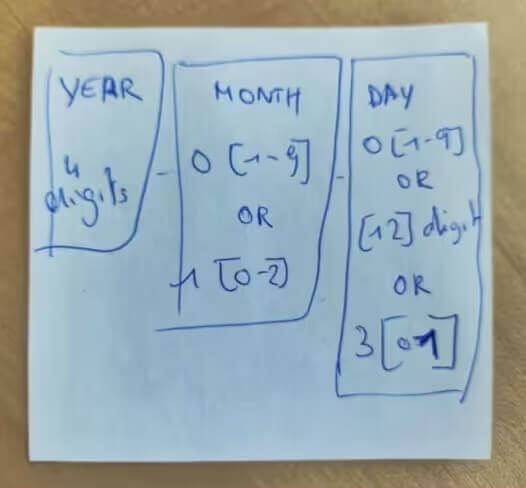 YEAR
4
digits
-
MONTH
0 [1-9]
OR
1 [0-2]
-
DAY
0 [1-9]
OR
[12] digit
OR
3 [01]